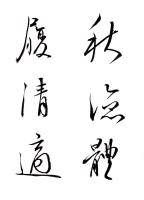 秋體
履清適